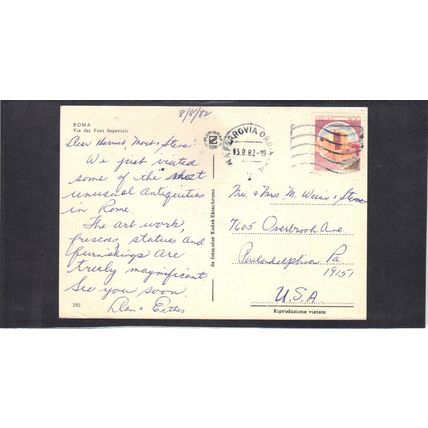 8/8/82
ROMA
Via dei Fori Imperiali
Dear Harriet, Mort & Steve:
We just visited
some of the most
unusual Antiquities
in Rome.
The art work,
frescoes, statues and
furnishings are
truely magnificent.
See you soon.
Dan & Esther
292
da fotocolor Kodak Ektachrome
FERROVIA
13.8.82-19
Mr. & Mrs. M. Weiss & Steve
7605 Overbrook Ave
Philadelphia Pa
19151
U.S.A
Riproduzione vietata